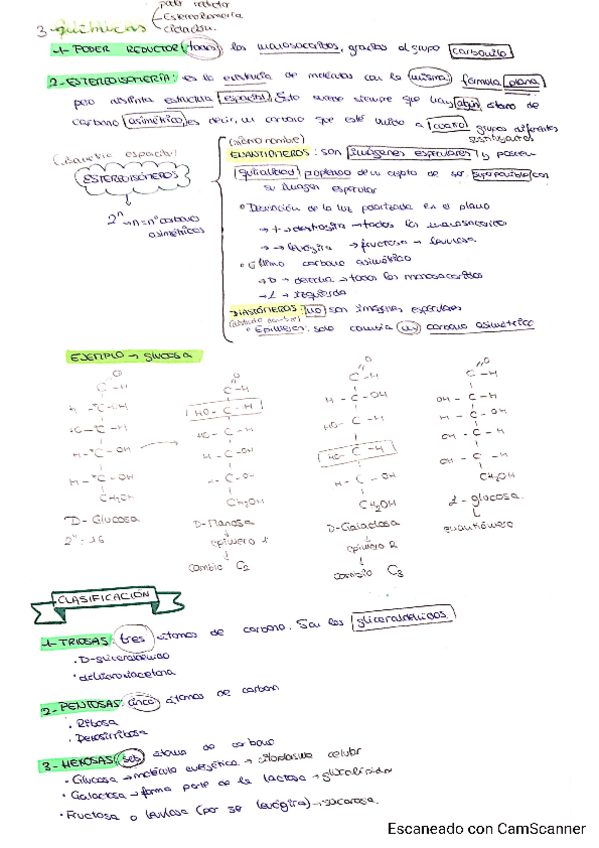 poder reductor
3-QUÍMICAS Estereoisomería
ciclación.
1- PODER REDUCTOR (todos) los monosacáridos, gracias al grupo carbonilo
2- ESTEREOISOMERÍA: es la existencia de moléculas con la misma fórmula plana
pero distinta estructura espacial. Esto ocurre siempre que haya algún átomo de
carbono asimétrico, es decir, un carbono que esté unido a cuatro grupos diferentes
sustituyentes
(mismo nombre)
ENANTIÓMEROS: son imágenes especulares y poseen
quiralidad propiedad de un objeto de no ser superponible con
su imagen especular
(espacial)
ESTEREOISÓMEROS
2ⁿ → n = nº carbonos
asimétricos
• Desviación de la luz polarizada en el plano
→ + → dextrógira → todos los monosacáridos
→ - → levógira → fructosa → levulosa.
• Último carbono asimétrico
→ D → derecha → todos los monosacáridos
→ L → izquierda
DIASTÓMEROS: no son imágenes especulares
(distinto nombre)
• Epímeros: solo cambia un carbono asimétrico
EJEMPLO → glucosa
O O O O
C - H C - H C - H C - H
H - C - OH HO - C - H H - C - OH OH - C - H
HO - C - H HO - C - H HO - C - H H - C - OH
H - C - OH H - C - OH HO - C - H OH - C - H
H - C - OH H - C - OH H - C - OH OH - C - H
CH₂OH CH₂OH CH₂OH CH₂OH
D- Glucosa D- Manosa D- Galactosa L - glucosa.
2ⁿ = 16 epímero 1 epímero 2 enantiómero
cambio C₂ cambio C₃
CLASIFICACIÓN
1- TRIOSAS: tres átomos de carbono. Son los gliceraldehídos
• D-gliceraldehído
• dihidroxiacetona
2- PENTOSAS: cinco átomos de carbon
• Ribosa
• Desoxirribosa
3- HEXOSAS: seis átomos de carbono
• Glucosa → molécula energética → citoplasma celular
• Galactosa → forma parte de la lactosa → glucolípidos
• Fructosa o levulosa (por ser levógira) → sacarosa.
Escaneado con CamScanner